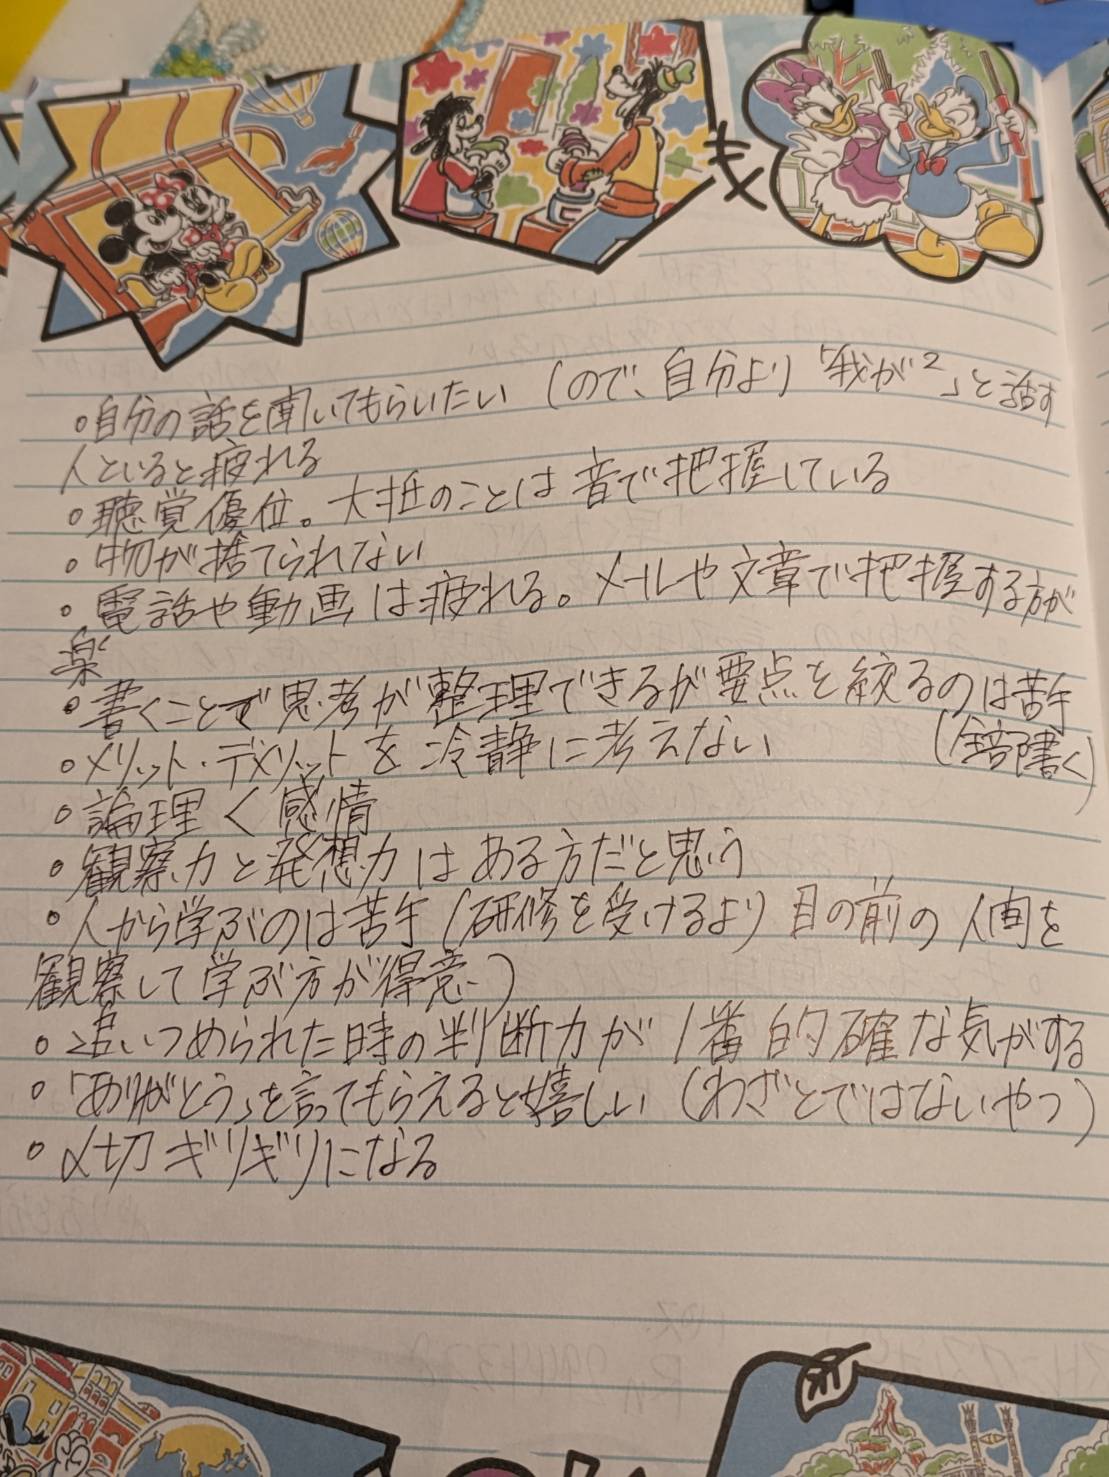 ・自分の話を聞いてもらいたい（ので、自分より「我が²」と話す
人といると疲れる
・聴覚優位。大抵のことは音で把握している
・物が捨てられない
・電話や動画は疲れる。メールや文章で把握する方が
楽
・書くことで思考が整理できるが要点を絞るのは苦手
（全部書く）
・メリット・デメリットを冷静に考えない
・論理＜感情
・観察力と発想力はある方だと思う
・人から学ぶのは苦手（研修を受けるより目の前の人間を
観察して学ぶ方が得意）
・追いつめられた時の判断力が1番的確な気がする
・「ありがとう」を言ってもらえると嬉しい（わざとではないやつ）
・〆切ギリギリになる